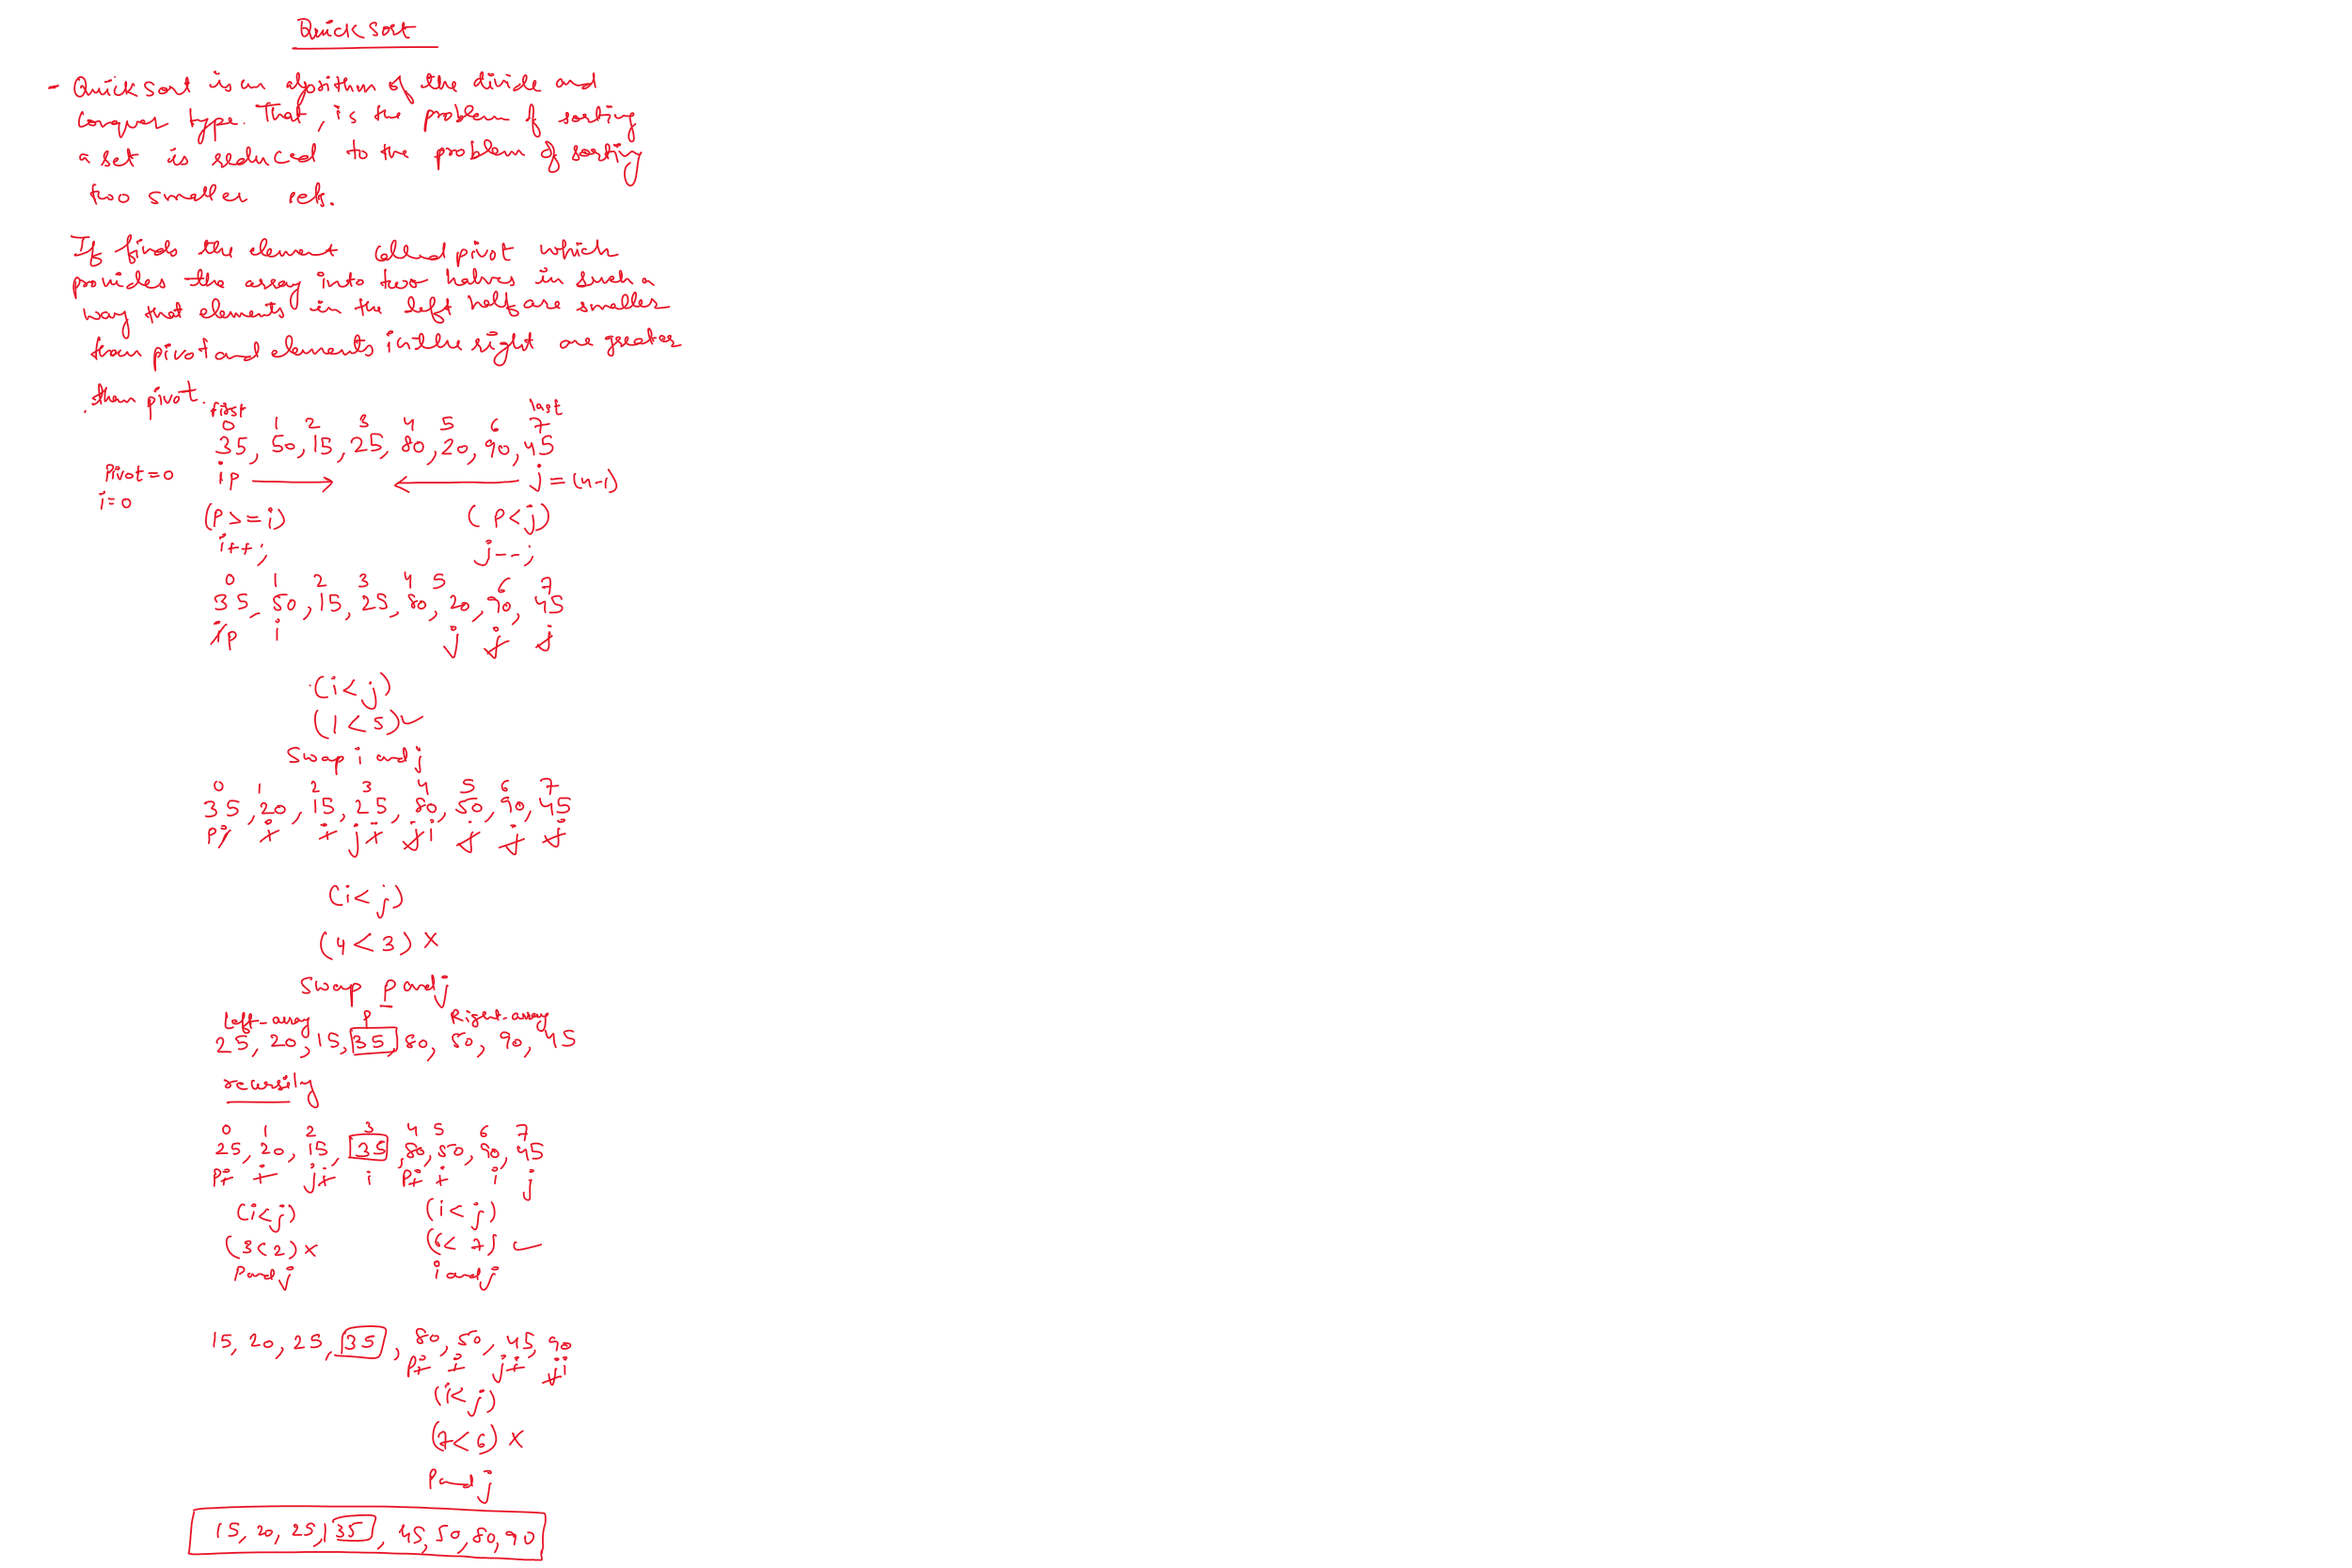 Quick Sort
- Quick Sort is an algorithm of the divide and
conquer type. That, is the problem of sorting
a set is reduced to the problem of sorting
two smaller sets.
It finds the element called pivot which
provides the array into two halves in such a
way that elements in the left half are smaller
than pivot and elements in the right are greater
than pivot.
first last
0 1 2 3 4 5 6 7
35, 50, 15, 25, 80, 20, 90, 45
Pivot=0 i p → ← j = (n-1)
i=0
(P>=i) (P<j)
i++; j--;
0 1 2 3 4 5 6 7
35, 50, 15, 25, 80, 20, 90, 45
i p i j j j
(i<j)
(1<5) ✓
Swap i and j
0 1 2 3 4 5 6 7
35, 20, 15, 25, 80, 50, 90, 45
p i i i j i j i j j j
(i<j)
(4<3) ×
Swap p and j
Left-array P Right-array
25, 20, 15, 35, 80, 50, 90, 45
recursily
0 1 2 3 4 5 6 7
25, 20, 15, 35, 80, 50, 90, 45
P i i j i i P i i i j
(i<j) (i<j)
(3<2) × (6<7) ✓
P and j i and j
15, 20, 25, 35, 80, 50, 45, 90
P i i j i j i
(i<j)
(7<6) ×
P and j
15, 20, 25, 35, 45, 50, 80, 90